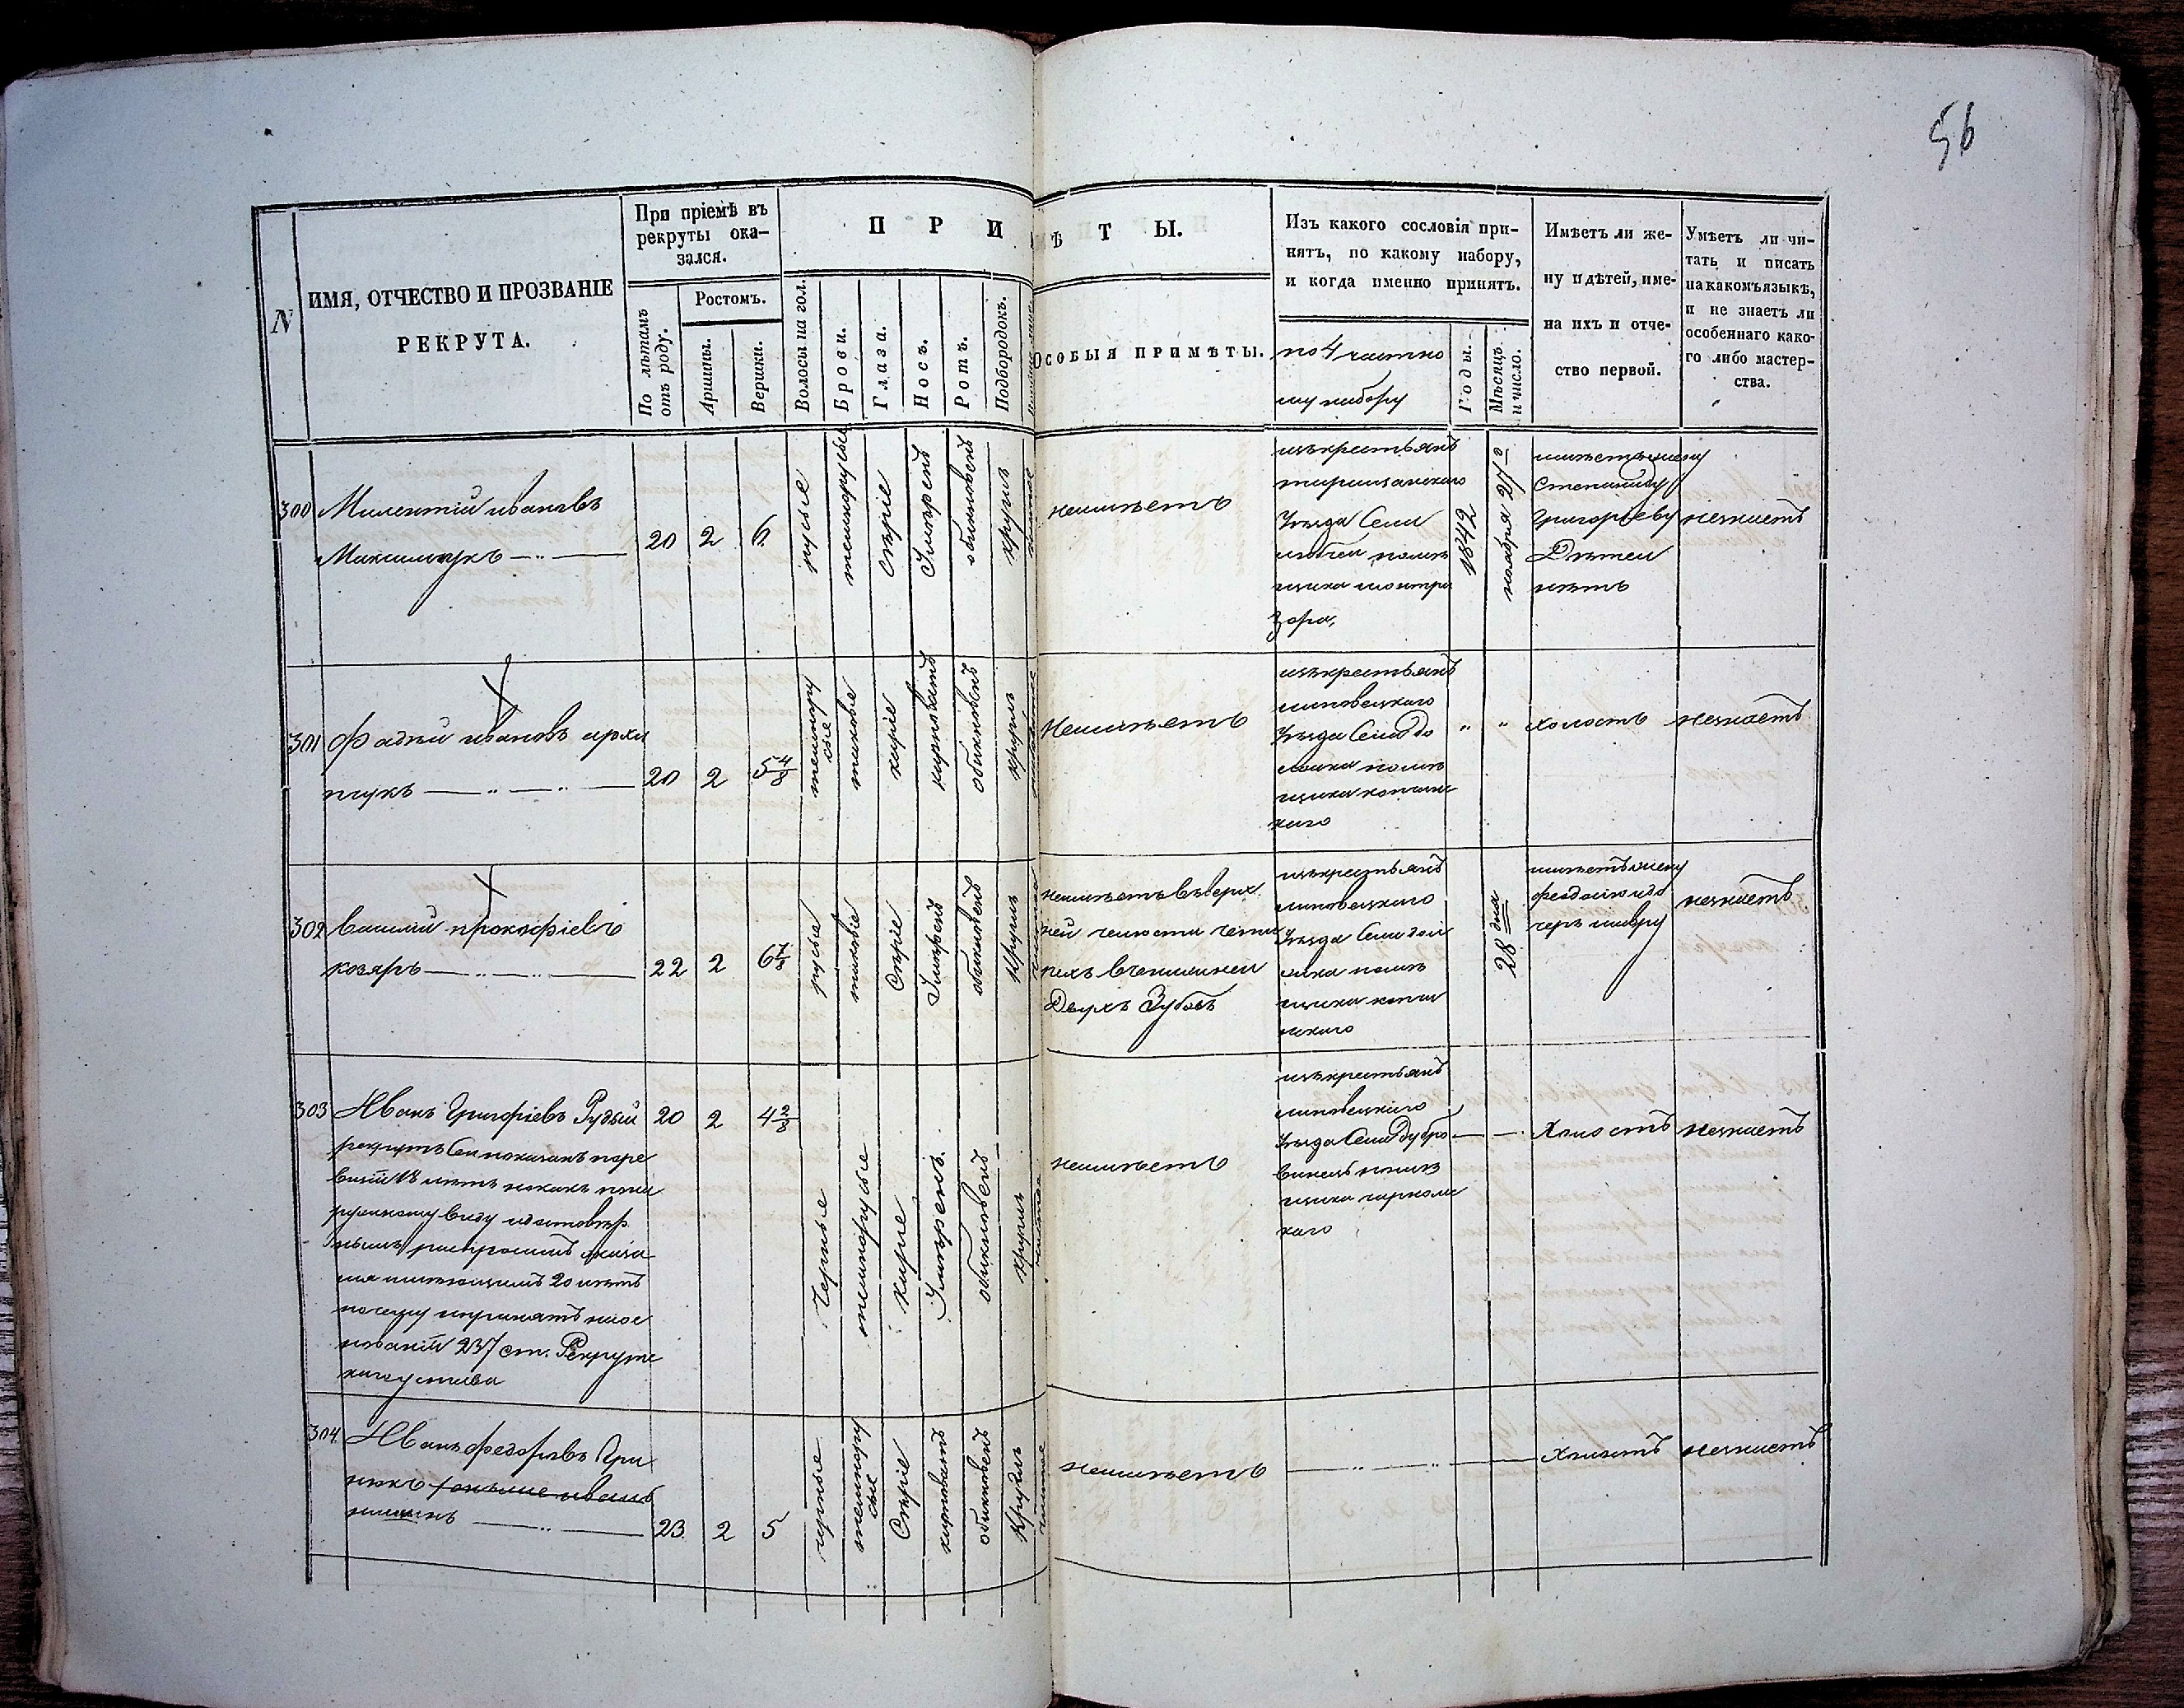 56
N
ИМЯ, ОТЧЕСТВО И ПРОЗВАНІЕ
РЕКРУТА.
При пріемѣ въ
рекруты ока-
зался.
По лѣтамъ
отъ роду.
Ростомъ.
Аршины.
Вершки.
П Р И
Ѣ Т Ы.
Волосы на гол.
Брови.
Глаза.
Носъ.
Ротъ.
Подбородокъ.
Особыя примѣты.
Изъ какого сословія при-
нятъ, по какому набору,
и когда именно принятъ.
по 4 частно
му набору
Годы.
Мѣсяцъ
и число.
Имѣетъ ли же-
ну и дѣтей, име-
на ихъ и отче-
ство первой.
Умѣетъ ли чи-
тать и писать
на какомъ языкѣ,
и не знаетъ ли
особеннаго како-
го либо мастер-
ства.
300
Милентій ивановъ
Максимчукъ
20
2
6
русые
темнорусые
Сѣріе
Умѣренъ
обыкновенъ
круглъ
чистое
неимѣетъ
изъкрестьянъ
тиращанскаго
Уѣзда Села
помѣ
щика
зора,
1842
ноября 27го
имѣетъжену
Степаниду
Григорьеву
Дѣтей
нѣтъ
незнаетъ
301
Фадѣй ивановъ архи
пчукъ
20
2
5 4/8
темнору
сые
таковіе
каріе
курноватъ
обыкновенъ
круглъ
Неимѣетъ
изъкрестьянъ
липовецкаго
Уѣзда Села До
помѣ
щика
каго
" "
холостъ
незнаетъ
302
Василій прокофіевъ
козяръ
22
2
6 7/8
русые
таковіе
Сѣріе
Умѣренъ
обыкновенъ
круглъ
неимѣетъ въверх
ней челюсти четы
рехъ внижней
Двухъ Зубовъ
изъкрестьянъ
липовецкаго
Уѣзда Села
помѣ
щика
скаго
28 дня
имѣетъжену
феодосію
незнаетъ
303
Иванъ Григоріевъ Рудый
20
2
4 2/8
рекрутъ Сей показанъ поре
визіи 18 лѣтъ но какъ пона
ружному виду
имѣющимъ 20 лѣтъ
почему ипринятъ наос
нованіи 237 ст. Рекрутс
каго устава
Черные
темнорусые
каріе
Умѣренъ
обыкновенъ
круглъ
чистое
неимѣетъ
изъкрестьянъ
липовецкаго
Уѣзда Села Дубро
винецъ помѣ
щика
каго
Холостъ
незнаетъ
304
Иванъ федоровъ Гри
нюкъ
23
2
5
черные
темнору
сые
Сѣріе
курноватъ
обыкновенъ
Круглъ
чистое
неимѣетъ
Холостъ
незнаетъ